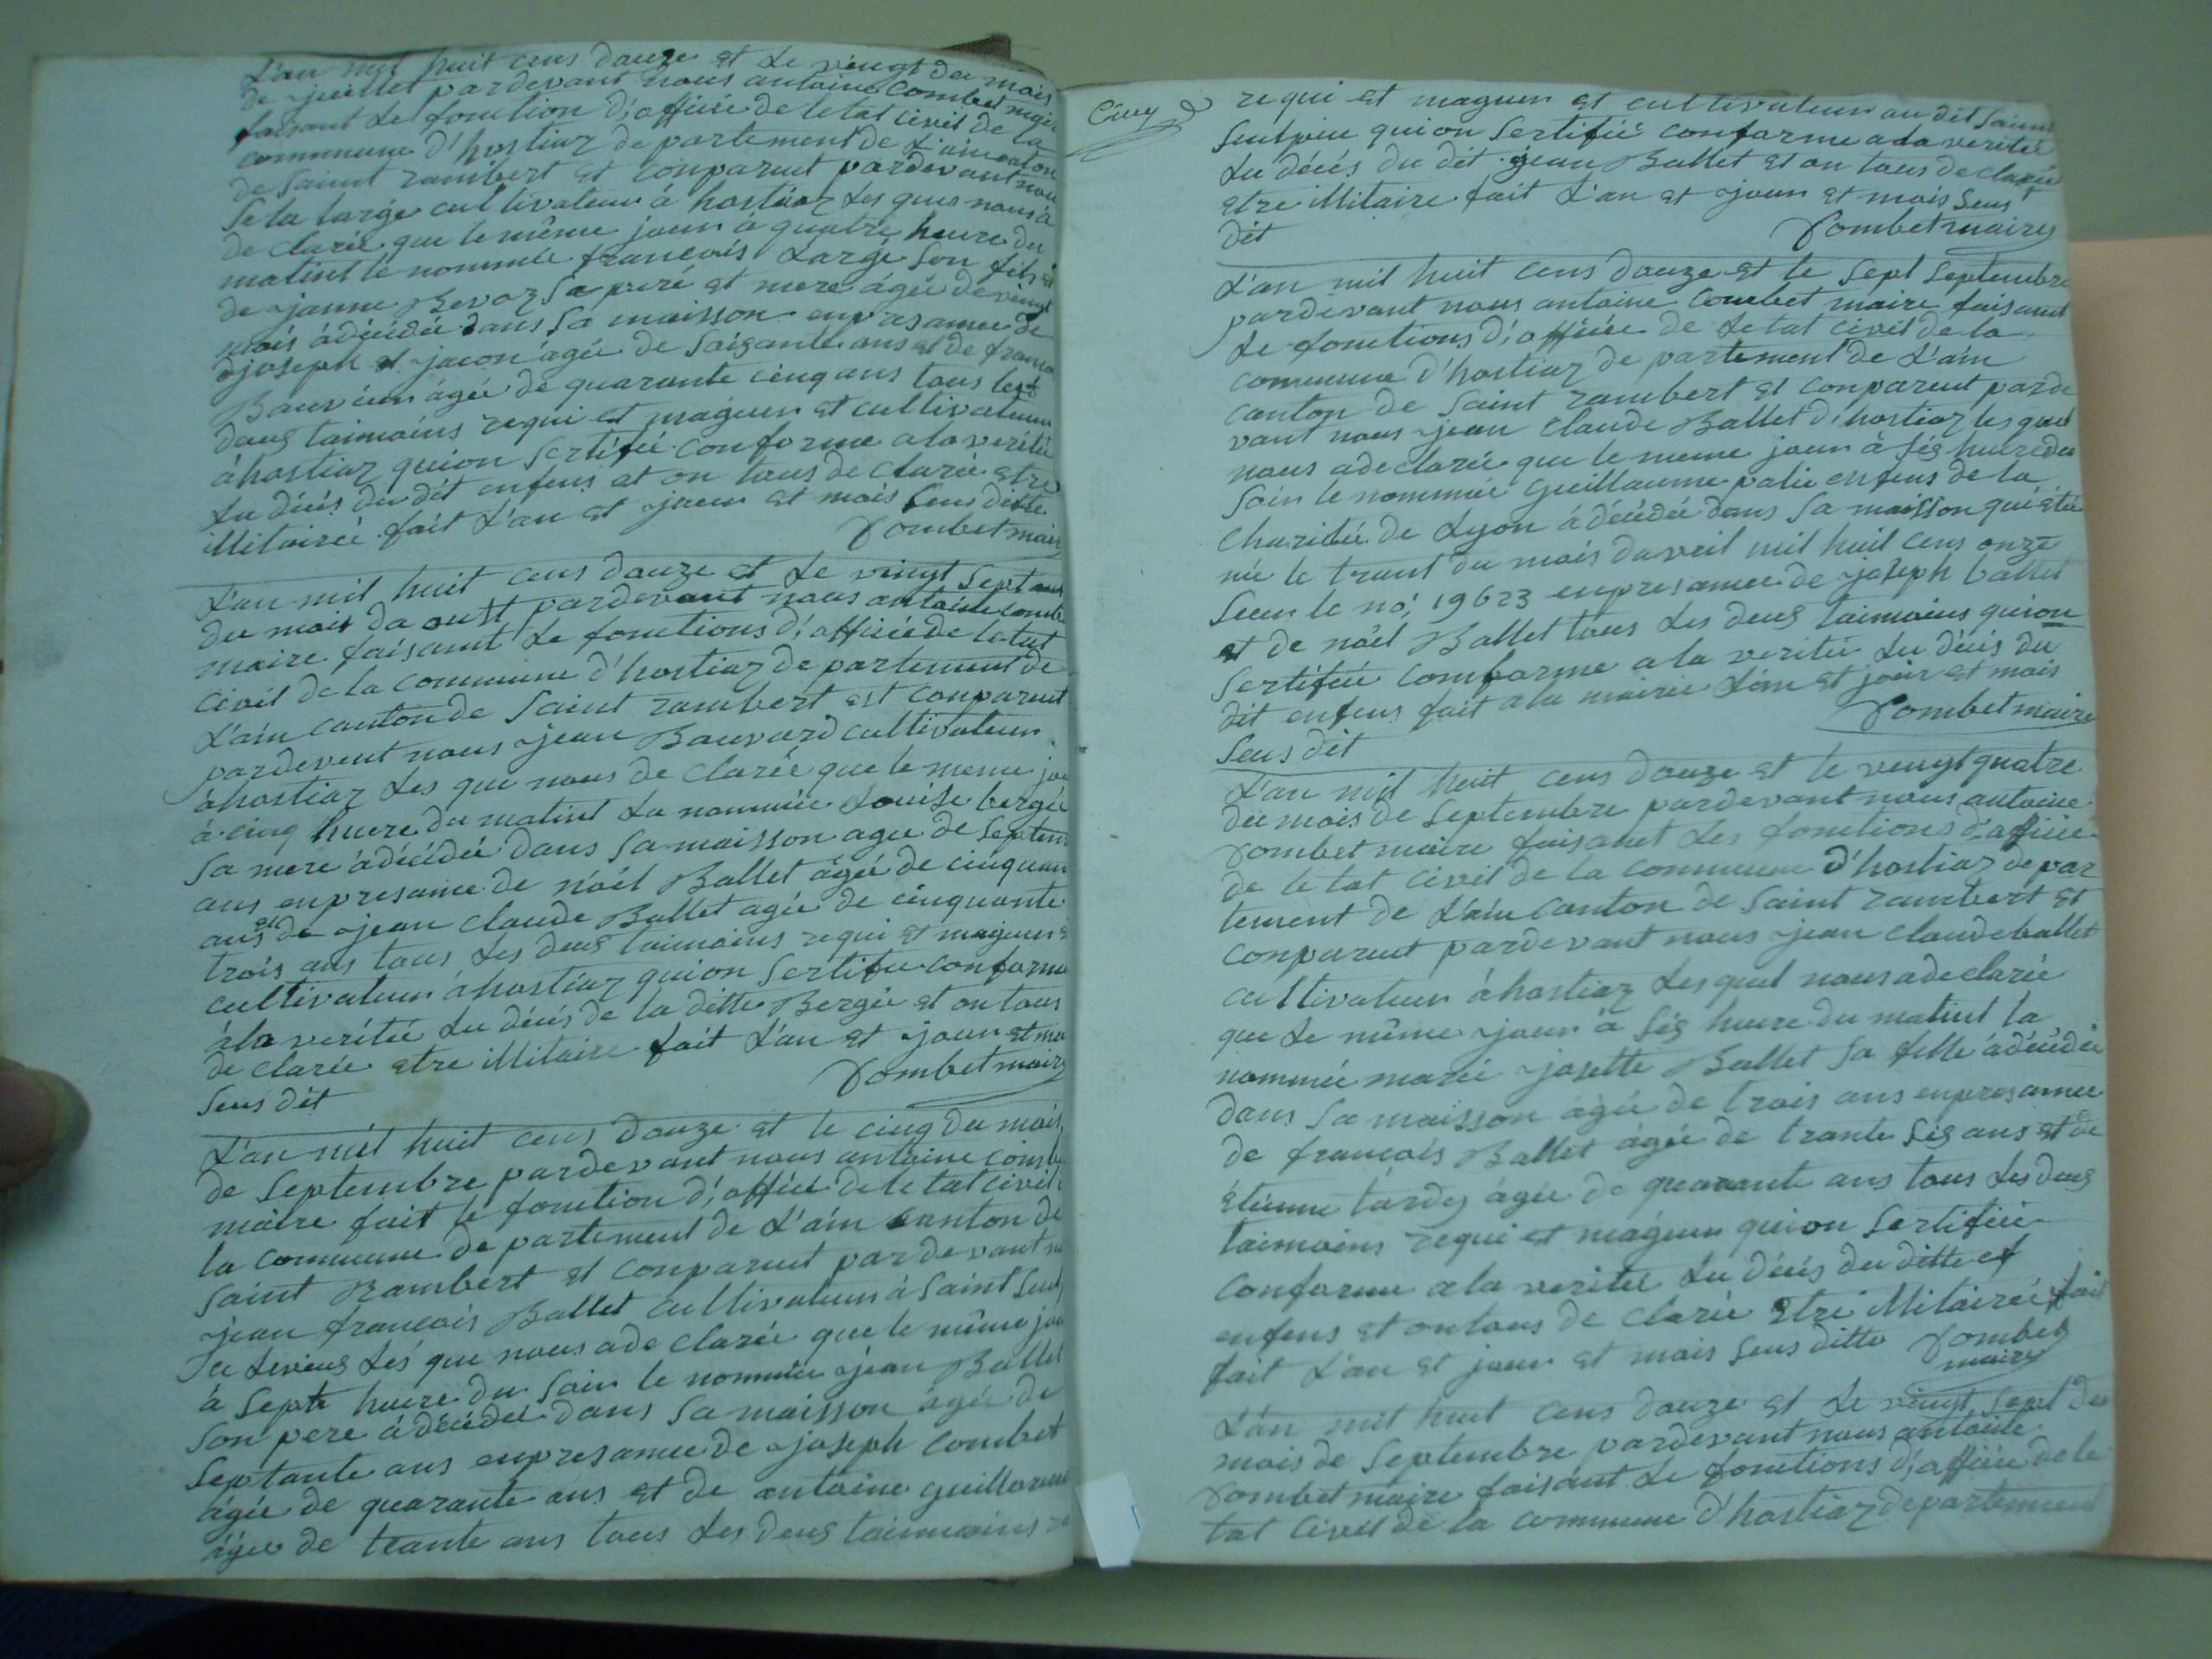 L'an mil huit cens douze et le vingt du mois
de juillet pardevant nous antoine Combet maire
faisant le fonction d', affiiée de letat civil de la
commune d'hostiaz departement de L'ain canton
de saint rambert et conparut pardevant nous
cultivateur à hostiaz les que nous a
de clarée que le même joun à quatre heure du
matint le nommée francois Largé son fils et
de janne Bevoz sa peré et mere agée de vingt
mois à décédée dans sa maisson enpresamee de
joseph jacon agée de soisante ans et de francois
Bauvien agée de quarante cinq ans tous les
deus taimoins requi et mageun et cultivateurs
à hostiaz quion sertifié conforme ala veritée
du décés du dét enfens et on tous de clarée etre
illitairée fait L'an et joun et mois seus ditte
Combet maire
L'an mil huit cens douze et le vingt sept
du mois da oust pardevant nous antoine Combet
maire faisant le fonctions d', affiiée de letat
civil de la commune d'hostiaz departement de
L'ain canton de saint rambert et conparut
pardevent nous jean Bauvard cultivateur
à hostiaz les que nous de clarée que le meme jou
à cinq heure du matint la nommée Louise bergée
sa mere à décédée dans sa maisson agee de septan
ans enpresamee de noél Ballet agée de cinquan
ans et de jean claude Ballet agée de cinquante
trois ans tous les deus taimoins requi et mageun
cultivateurs à hostiaz quion sertifée conforme
à la veritée du décés de la ditte Bergée et on tous
de clarée etre illitaire fait L'an et joun et moi
seus dét
Combet maire
L'an mil huit cens douze et le cinq du mois
de septembre pardevant nous antoine combe
maire fait le fonction d', affiée de le tat civil
la commune departement de L'ain canton de
saint Rambert et conparut pardevant nou
jean francois Ballet cultivateur à saint seul
les que nous ade clarée que le même jou
à septe heure du soir le nommée jean Ballet
son pere à décédée dans sa maisson agée de
septante ans enpresamee de joseph Combet
agée de quarante ans et de antoine guillaume
agée de trante ans tous les deus taimoins re
requi et mageun et cultivateur au dit saint
seulpiee quion sertifié conforme ada veritée
du décés du dét jean Ballet et on tous de clarée
etre illitaire fait L'an et joun et mois seus
dét
Combet maire
L'an mil huit cens douze et le sept septembre
pardevant nous antoine Combet maire faisant
le fonctions d', affiée de letat civil de la
commune d'hostiaz departement de L'ain
canton de saint rambert et conparut parde
vant nous jean claude Ballet d'hostiaz les quel
nous adeclarée que le meme joun à sés heure du
soir le nommée guillaume palie enfens de la
charitée de Lyon à décédée dans sa maisson qui étée
née le trant du mois davril mil huit cens onze
seun le nó, 19623 enpresamee de joseph ballet
et de noél Ballet tous les deus taimoins quion
sertifiée comforme ala veritée du décés du
dit enfens fait ala mairie L'an et joun et mois
seus dét
Combet maire
L'an mil huit cens douze et le vengt quatre
du mois de septembre pardevant nous antoine
Combet maire faisant les fonctions d'affiiée
de le tat civil de la commune d'hostiaz depar
tement de L'ain canton de saint rambert et
conparut pardevant nous jean claude ballet
cultivateur à hostiaz les quel nous adeclarée
que le même joun à sés heure du matint la
nommée marie josette Ballet sa fille à décédée
dans sa maisson agée de trois ans enpresamee
de francois Ballet agée de trante sés ans et de
étienne tardy agée de quarante ans tous les deus
taimoins requi et mageun quion sertifiée
conforme ala veritée du décés du ditte et
enfens et on tous de clarée etre illitairée fait
fait L'an et joun et mois seus ditte Combet
maire
L'an mil huit cens douze et le vingt sept du
mois de septembre pardevant nous antoine
Combet maire faisant le fonctions d', affiée de le
tat civil de la commune d'hostiaz departement